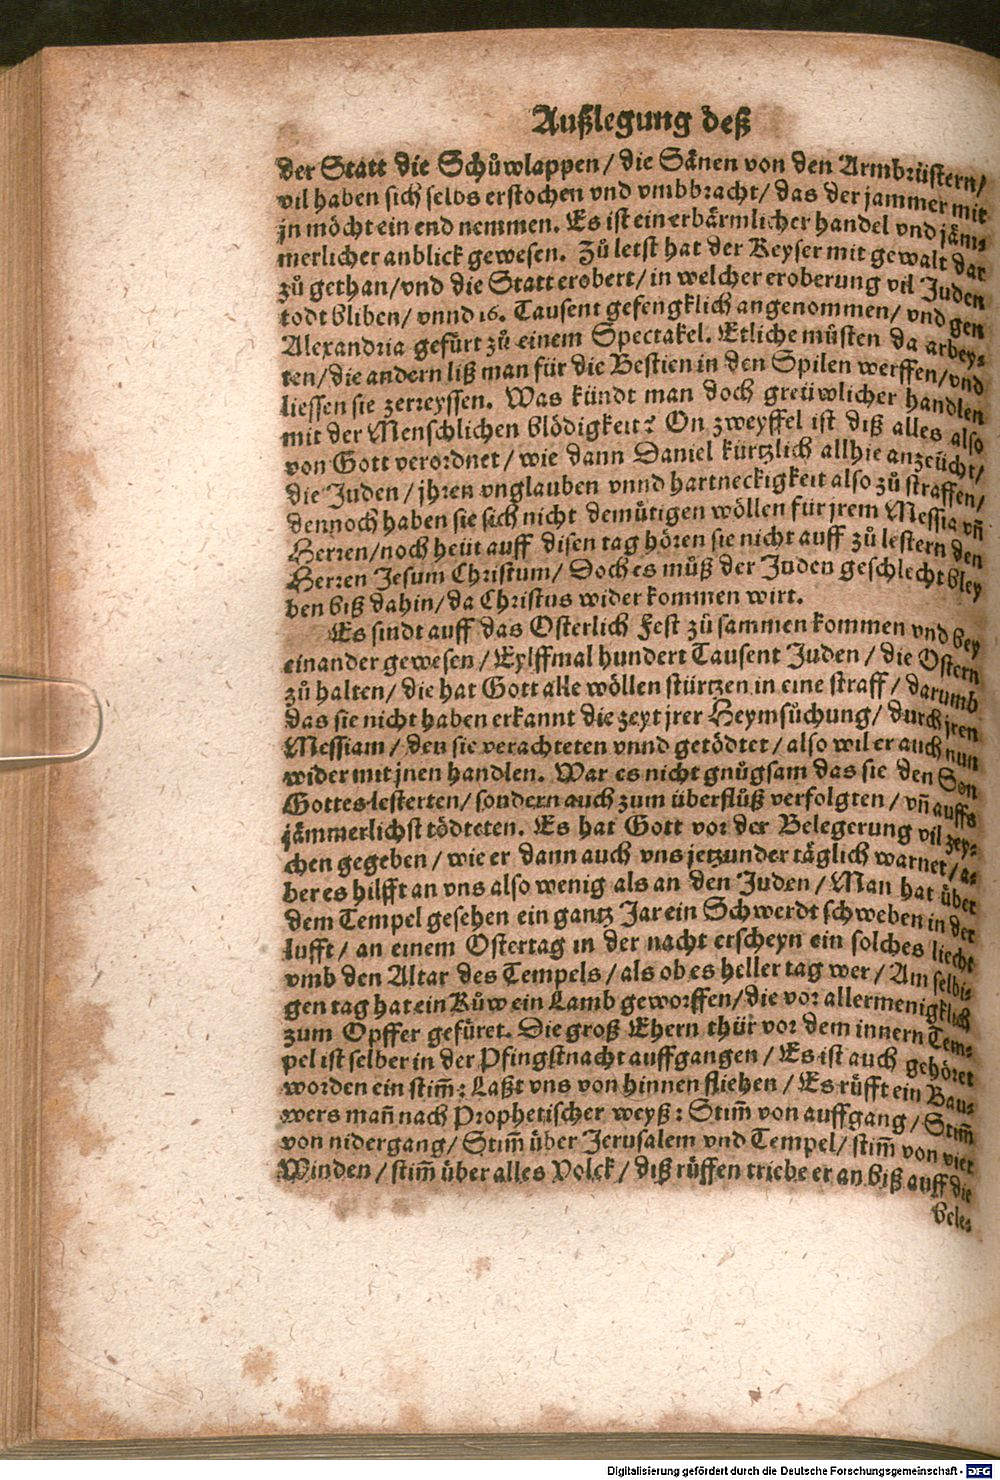 Außlegung deß
der Statt die Schůwlappen / die Sänen von den Armbrüstern /
vil haben sich selbs erstochen vnd vmbbracht / das der jammer mit
jn möcht ein end nemmen. Es ist ein erbärmlicher handel vnd jäm⸗
merlicher anblick gewesen. Zů letst hat der Keyser mit gewalt dar
zů gethan / vnd die Statt erobert / in welcher eroberung vil Juden
todt bliben / vnnd 16. Tausent gefengklich angenommen / vnd gen
Alexandria gefürt zů einem Spectakel. Etliche můsten da arbey⸗
ten / die andern liß man für die Bestien in den Spilen werffen / vnd
liessen sie zerreyssen. Was kündt man doch greüwlicher handlen
mit der Menschlichen blödigkeit? On zweyffel ist diß alles also
von Gott verordnet / wie dann Daniel kürtzlich allhie anzeücht /
die Juden / jhren vnglauben vnnd hartneckigkeit also zů straffen /
dennoch haben sie sich nicht demütigen wöllen für jrem Messia vñ
Herren / noch heüt auff disen tag hören sie nicht auff zů lestern den
Herren Jesum Christum / Doch es můß der Juden geschlecht bley
ben biß dahin / da Christus wider kommen wirt.
Es sindt auff das Osterlich Fest zů sammen kommen vnd bey
einander gewesen / Eylffmal hundert Tausent Juden / die Ostern
zů halten / die hat Gott alle wöllen stürtzen in eine straff / darumb
das sie nicht haben erkannt die zeyt jrer Heymsůchung / durch jren
Messiam / den sie verachteten vnnd getödtet / also wil er auch nun
wider mit jnen handlen. War es nicht gnůgsam das sie den Son
Gottes lesterten / sondern auch zum überflůß verfolgten / vñ auffs
jämmerlichst tödteten. Es hat Gott vor der Belegerung vil zey⸗
chen gegeben / wie er dann auch vns jetzunder täglich warnet / a⸗
ber es hilfft an vns also wenig als an den Juden / Man hat über
dem Tempel gesehen ein gantz Jar ein Schwerdt schweben in der
lufft / an einem Ostertag in der nacht erscheyn ein solches liecht
vmb den Altar des Tempels / als ob es heller tag wer / Am selbi⸗
gen tag hat ein Kůw ein Lamb geworffen / die vor allermenigklich
zum Opffer gefüret. Die groß Ehern thür vor dem innern Tem⸗
pel ist selber in der Pfingstnacht auffgangen / Es ist auch gehöret
worden ein stim̃: Laßt vns von hinnen fliehen / Es růfft ein Bau⸗
wers mañ nach Prophetischer weyß: Stim̃ von auffgang / Stim̃
von nidergang / Stim̃ über Jerusalem vnd Tempel / stim̃ von vier
Winden / stim̃ über alles Volck / diß růffen triebe er an biß auff die
bele⸗
Digitalisierung gefördert durch die Deutsche Forschungsgemeinschaft - DFG